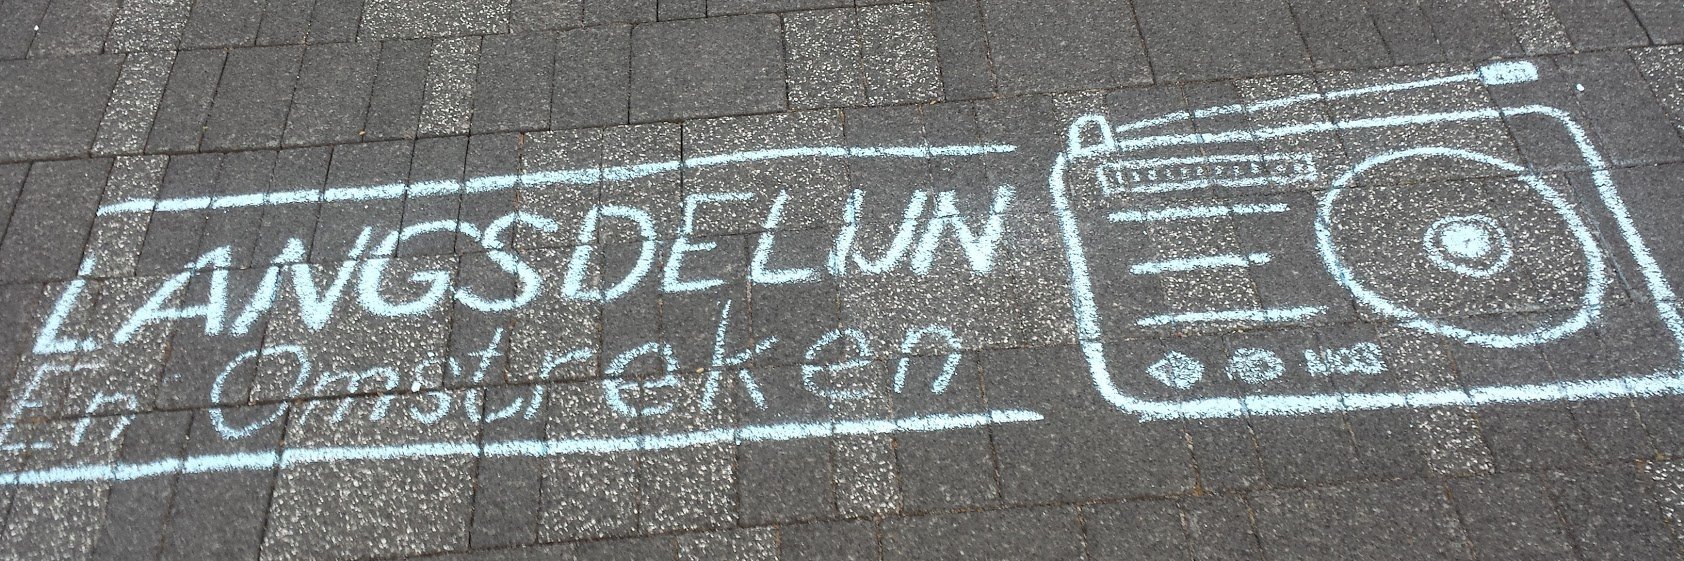 LANGSDELIJN
En Omstreken